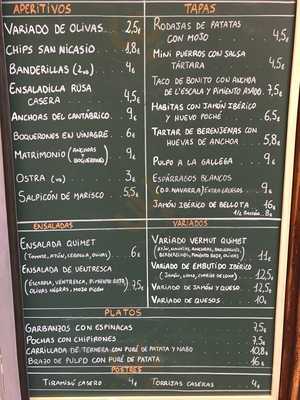 APERITIVOS
VARIADO DE OLIVAS 2,5€
CHIPS SAN NICASIO 1,8€
BANDERILLAS (2 UD) 4€
ENSALADILLA RUSA
CASERA 4,5€
ANCHOAS DEL CANTÁBRICO 9€
BOQUERONES EN VINAGRE 6€
MATRIMONIO (ANCHOAS Y BOQUERONES) 9€
OSTRA (UD) 3€
SALPICÓN DE MARISCO 5,5€
TAPAS
RODAJAS DE PATATAS
CON MOJO 4,5€
MINI PUERROS CON SALSA
TÁRTARA 4,5€
TACO DE BONITO CON ANCHOA
DE L'ESCALA Y PIMIENTO ASADO 7,5€
HABITAS CON JAMÓN IBÉRICO
Y HUEVO POCHÉ 6,5€
TARTAR DE BERENJENAS CON
HUEVAS DE ANCHOA 5,8€
PULPO A LA GALLEGA 9€
ESPÁRRAGOS BLANCOS
(D.O NAVARRA) EXTRA GRUESOS 9€
JAMÓN IBÉRICO DE BELLOTA 16€
1/2 RACIÓN 8€
ENSALADAS
ENSALADA QUIMET
(TOMATE, ATÚN, CEBOLLA, OLIVAS) 6€
ENSALADA DE VENTRESCA
(ESCAROLA, VENTRESCA, PIMIENTO ROJO,
OLIVAS NEGRAS, MOJO PICÓN) 7,5€
VARIADOS
VARIADO VERMUT QUIMET
BERBERECHOS, PIMIENTO ROJO, OLIVAS) 11€
VARIADO DE EMBUTIDO IBÉRICO
(JAMÓN, LOMO, CHORIZO DE LEÓN) 12,5€
VARIADO DE JAMÓN Y QUESO 12,5€
VARIADO DE QUESOS 10€
PLATOS
GARBANZOS CON ESPINACAS 7,5€
POCHAS CON CHIPIRONES 7,5€
CARRILLADA DE TERNERA CON PURÉ DE PATATA Y NABO 10,8€
BRAZO DE PULPO CON PURÉ DE PATATA 16€
POSTRES
TIRAMISÚ CASERO 4€
TORRIJAS CASERAS 4€